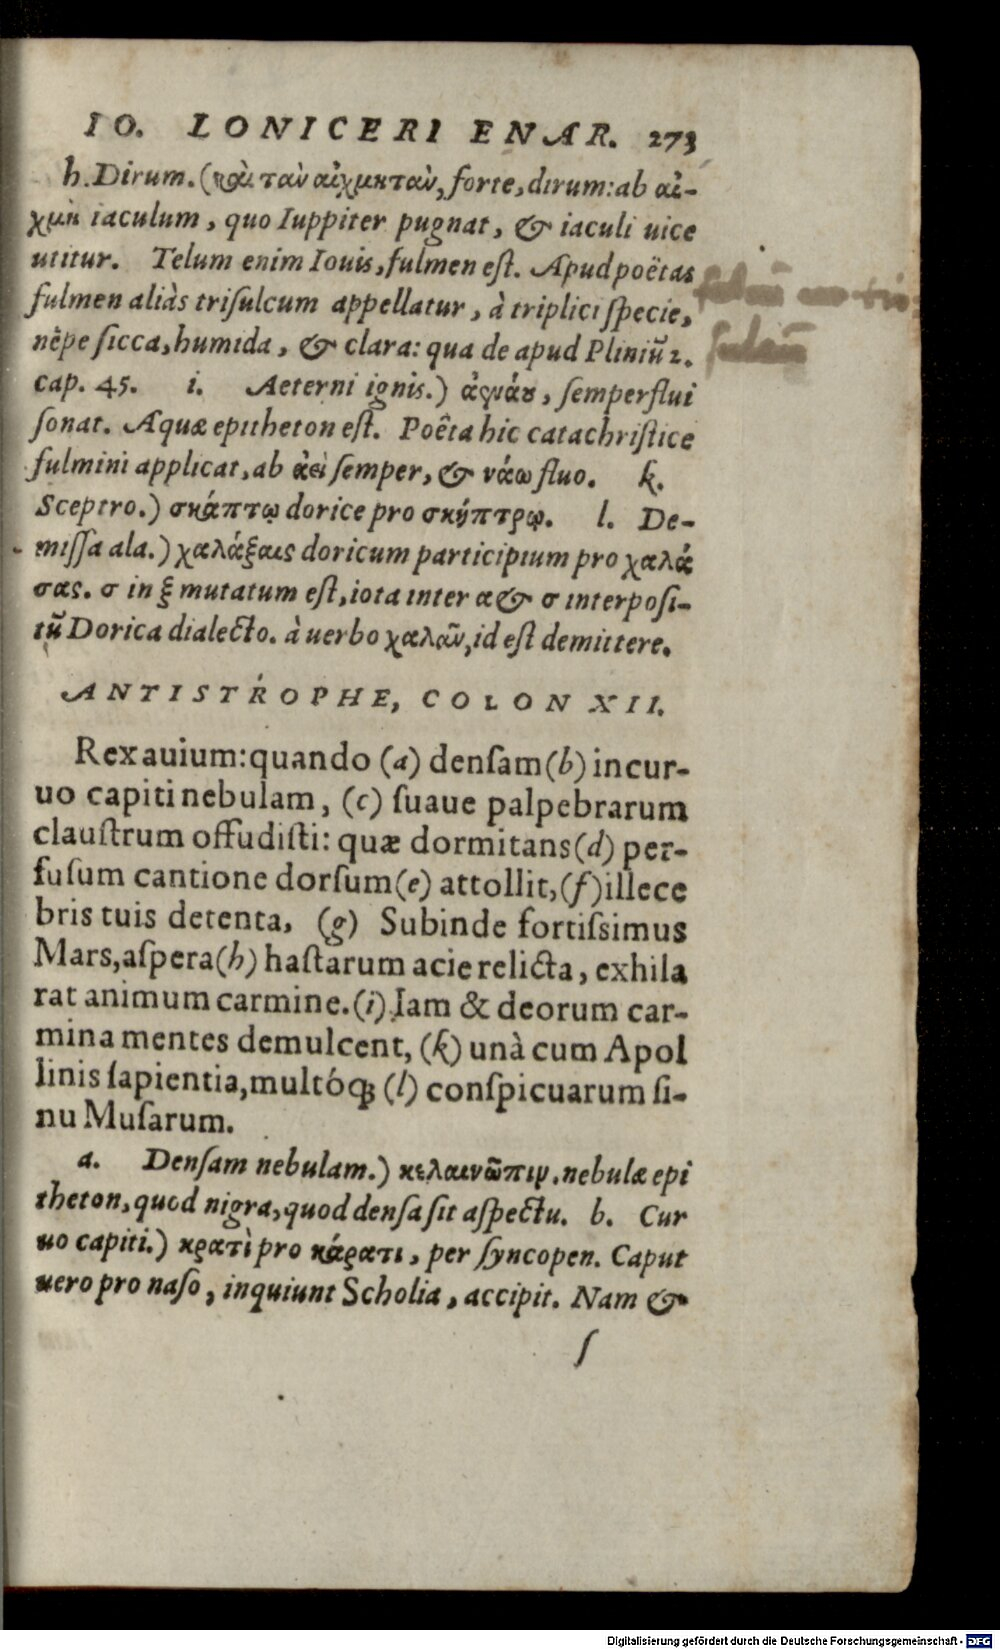 IO. LONICERI ENAR. 273
h. Dirum. (καὶ ταὺ αἰχμηταὺ, forte, dirum: ab αἰ-
χμὴ iaculum, quo Iuppiter pugnat, & iaculi uice
utitur. Telum enim Iouis, fulmen eſt. Apud poëtas
fulmen aliàs triſulcum appellatur, à triplici ſpecie,
nẽpe ſicca, humida, & clara: qua de apud Pliniũ 2.
cap. 45. i. Aeterni ignis.) ἀενάου, ſemperflui
ſonat. Aquæ epitheton eſt. Poëta hic catachriſtice
fulmini applicat, ab ἀεὶ ſemper, & νάω fluo. k.
Sceptro.) σκάπτῳ dorice pro σκήπτρῳ. l. De-
miſſa ala.) χαλάξαις doricum participium pro χαλά
σας. σ in ξ mutatum eſt, iota inter α & σ interpoſi-
tũ Dorica dialecto. à uerbo χαλᾶν, id eſt demittere.
ANTISTROPHE, COLON XII.
Rex auium: quando (a) denſam (b) incur-
uo capiti nebulam, (c) ſuaue palpebrarum
clauſtrum offudiſti: quæ dormitans (d) per-
fuſum cantione dorſum (e) attollit, (f) illece
bris tuis detenta, (g) Subinde fortiſsimus
Mars, aſpera (h) haſtarum acie relicta, exhila
rat animum carmine. (i) Iam & deorum car-
mina mentes demulcent, (k) unà cum Apol
linis ſapientia, multóꝗ; (l) conſpicuarum ſi-
nu Muſarum.
a. Denſam nebulam.) κελαινῶπιν. nebulæ epi
theton, quod nigra, quod denſa ſit aſpectu. b. Cur
uo capiti.) κρατὶ pro κάρατι, per ſyncopen. Caput
uero pro naſo, inquiunt Scholia, accipit. Nam &
ſ
Digitalisierung gefördert durch die Deutsche Forschungsgemeinschaft - DFG